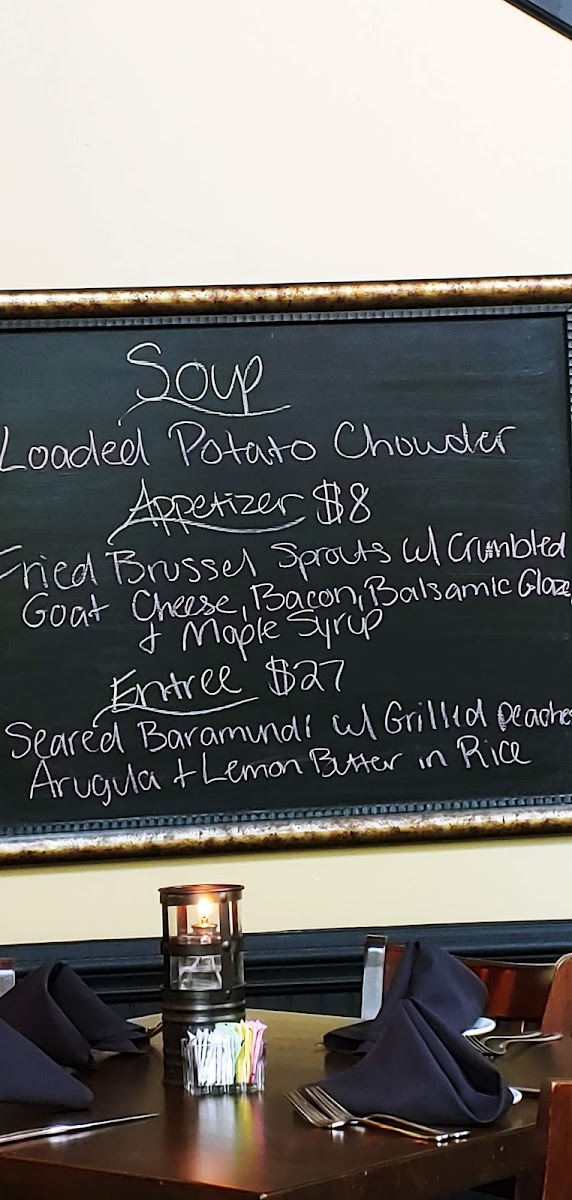 Soup
Loaded Potato Chowder
Appetizer $8
Fried Brussel Sprouts w/ Crumbled
Goat Cheese, Bacon, Balsamic Glaze,
+ Maple Syrup
Entree $27
Seared Baramundi w/ Grilled peaches
Arugula + Lemon Butter in Rice